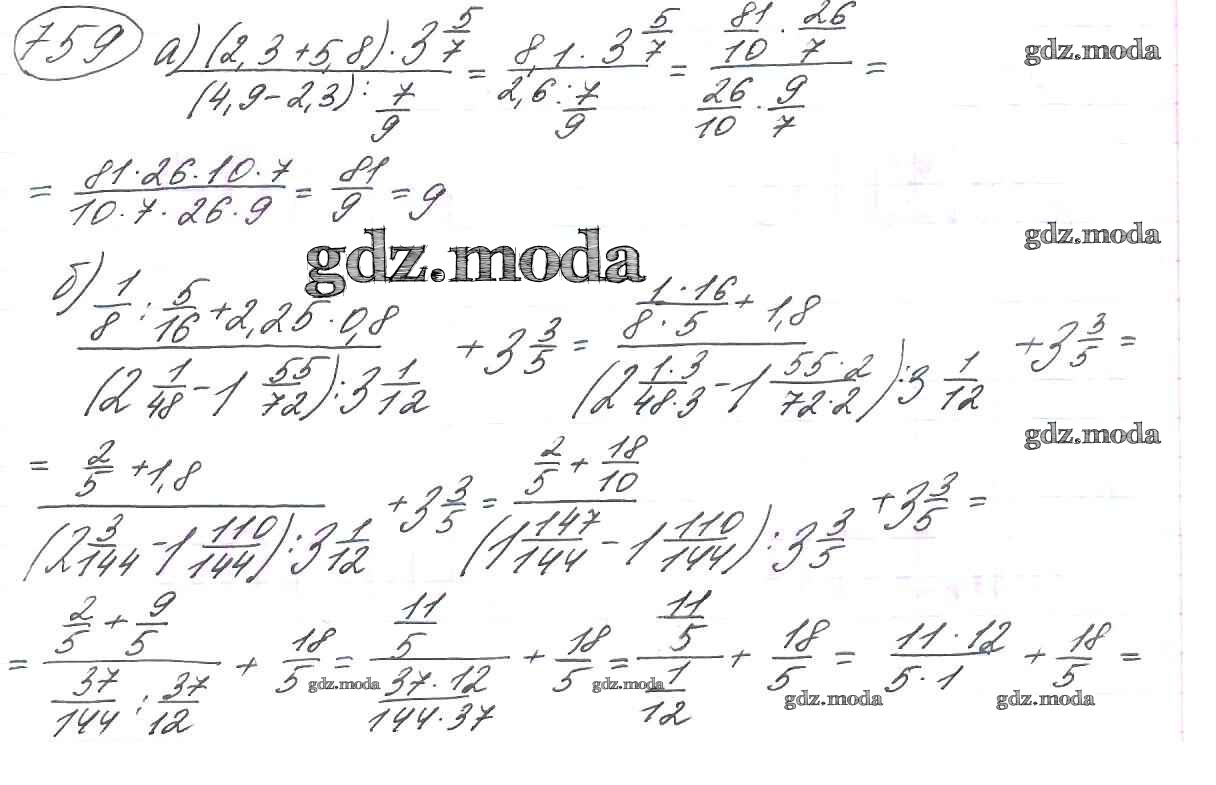 759 а) ((2,3 + 5,8) · 3 5/7) / ((4,9 - 2,3) : 7/9) = (8,1 · 3 5/7) / (2,6 : 7/9) = (81/10 · 26/7) / (26/10 · 9/7) =
gdz.moda
= (81 · 26 · 10 · 7) / (10 · 7 · 26 · 9) = 81/9 = 9
gdz.moda
gdz.moda
б) (1/8 : 5/16 + 2,25 · 0,8) / ((2 1/48 - 1 55/72) : 3 1/12) + 3 3/5 = ((1 · 16)/(8 · 5) + 1,8) / ((2 (1 · 3)/(48 · 3) - 1 (55 · 2)/(72 · 2)) : 3 1/12) + 3 3/5 =
gdz.moda
= (2/5 + 1,8) / ((2 3/144 - 1 110/144) : 3 1/12) + 3 3/5 = (2/5 + 18/10) / ((1 147/144 - 1 110/144) : 3 3/5) + 3 3/5 =
= (2/5 + 9/5) / (37/144 : 37/12) + 18/5 = (11/5) / ((37 · 12)/(144 · 37)) + 18/5 = (11/5) / (1/12) + 18/5 = (11 · 12)/(5 · 1) + 18/5 =
gdz.moda gdz.moda gdz.moda gdz.moda